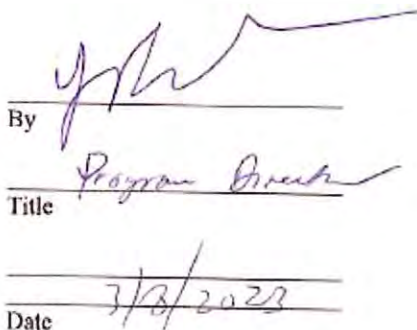 By
Program Director
Title
3/8/2023
Date